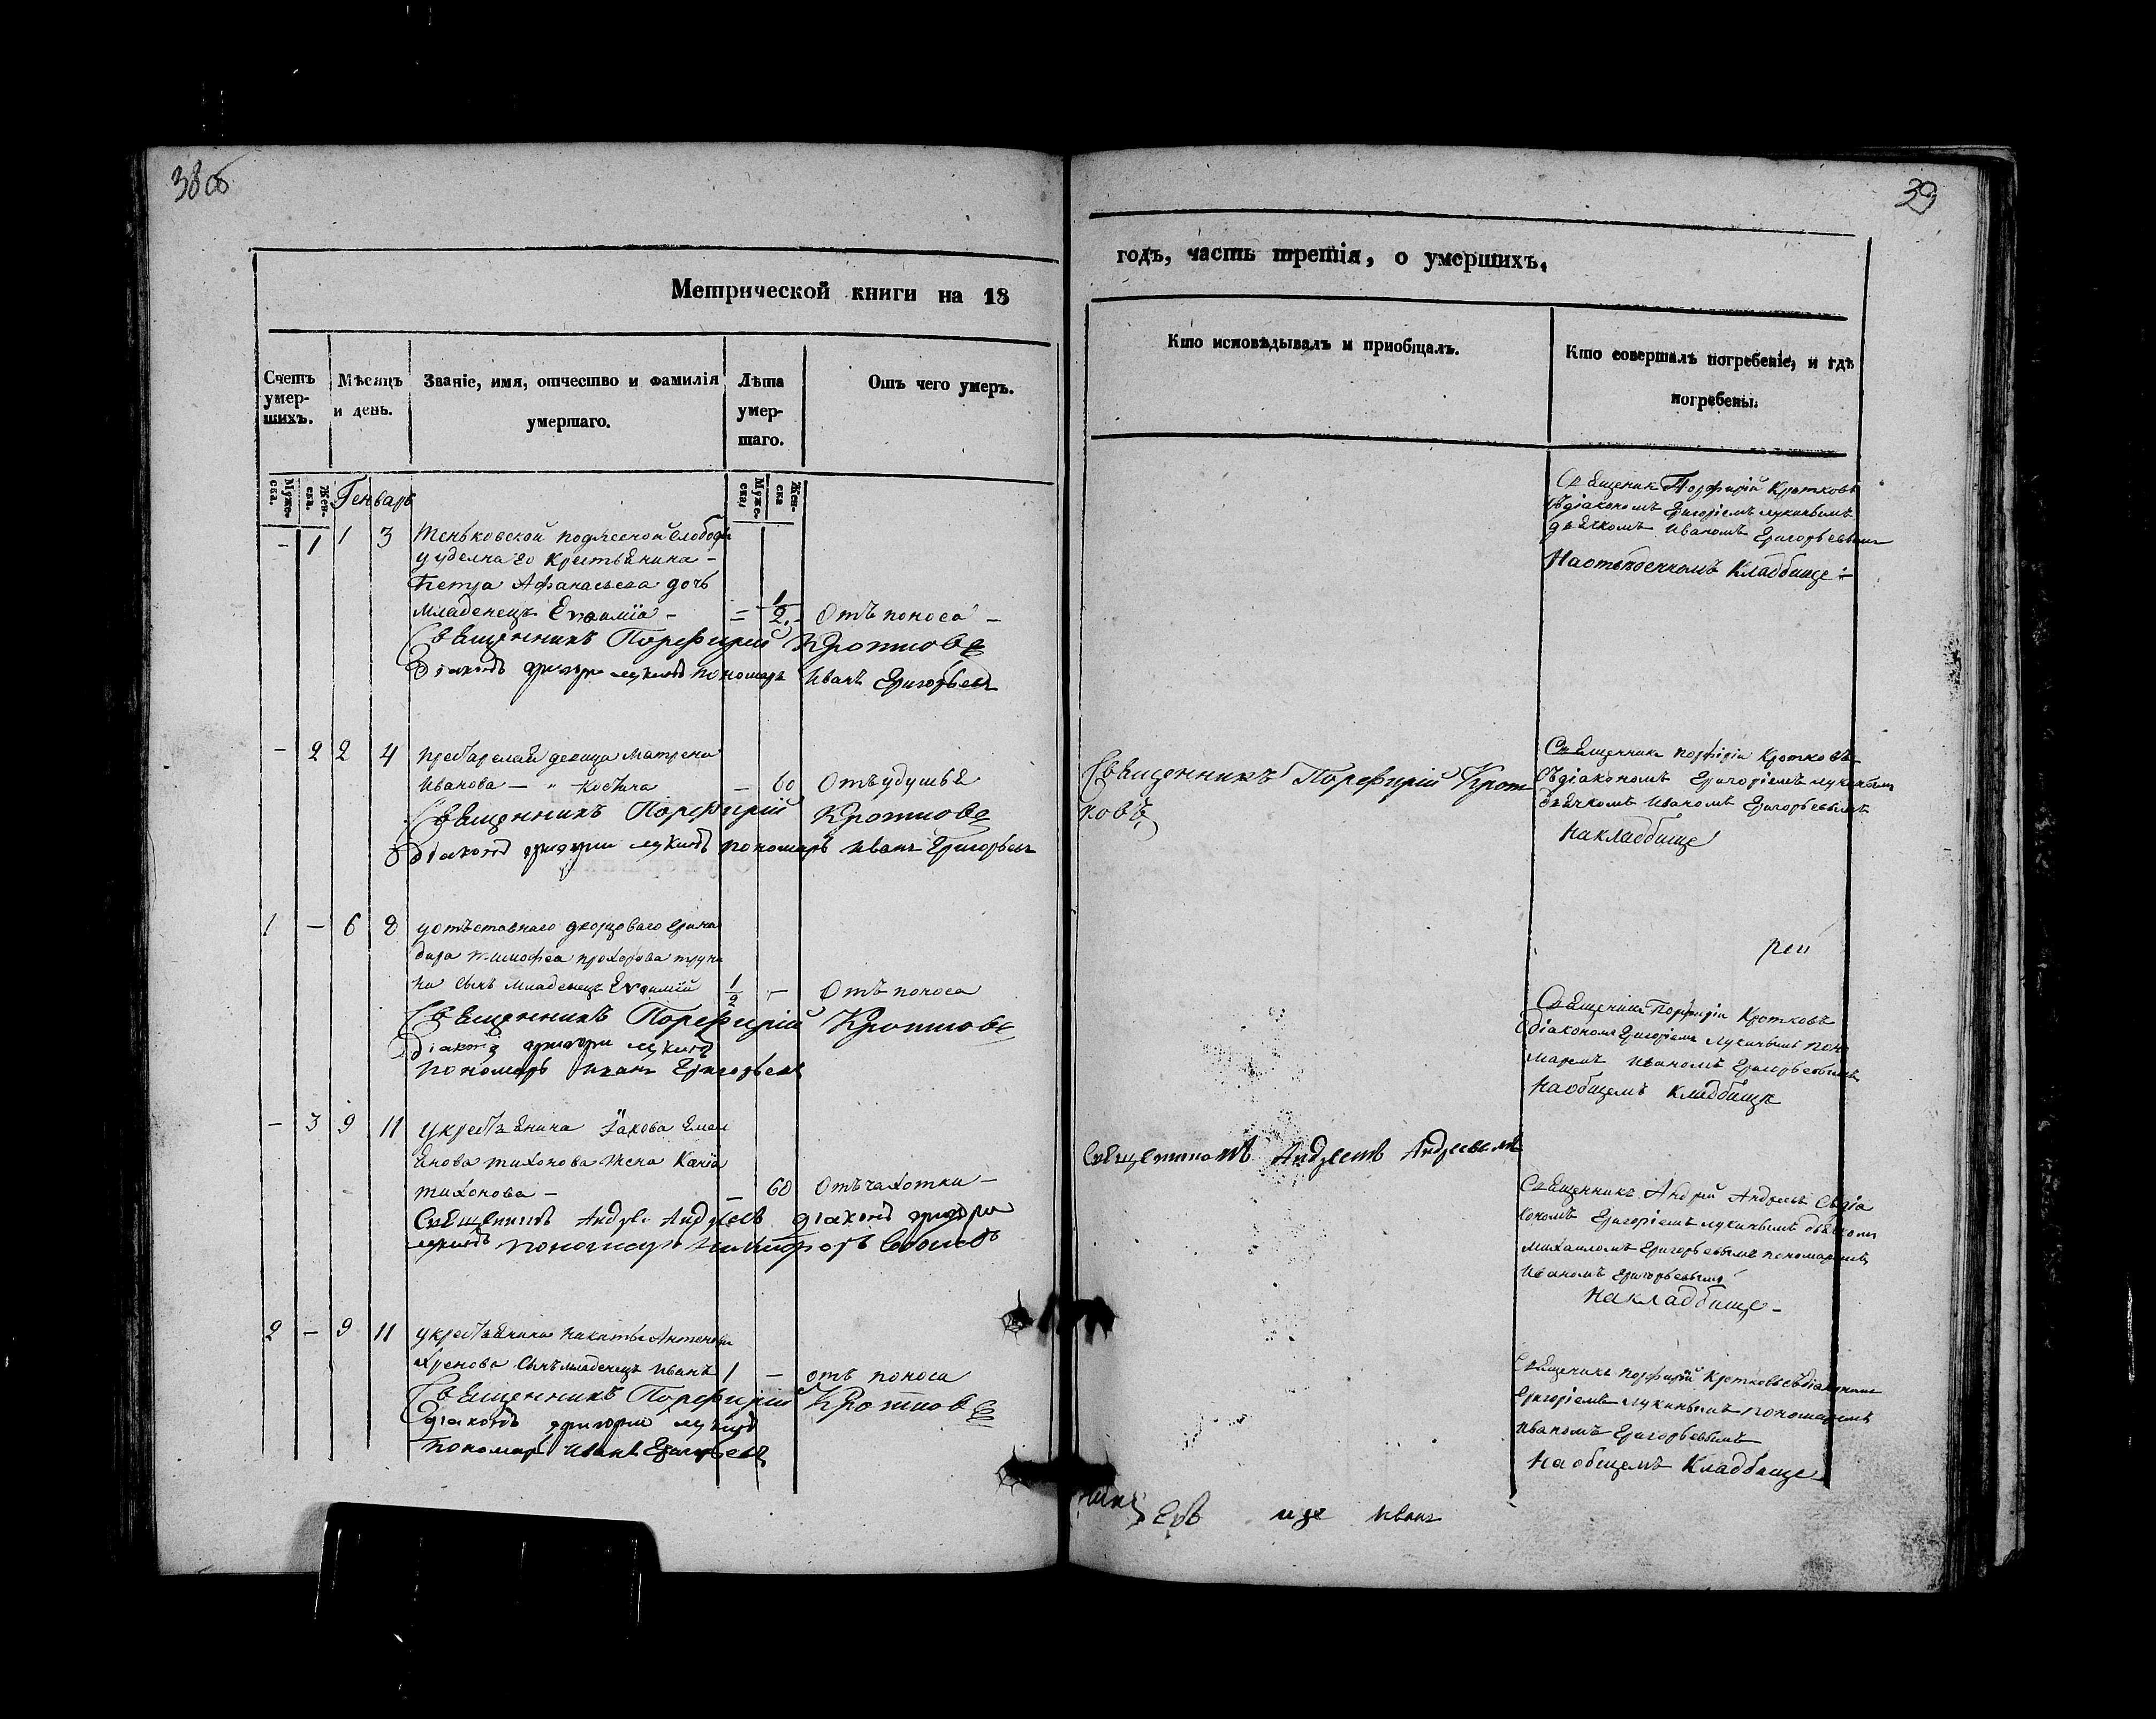 38об
39
Метрической книги на 18
годъ, часть третія, о умершихъ.
Счетъ умер-шихъ.
Мѣсяцъ и день.
Званіе, имя, отчество и фамилія умершаго.
Лѣта умер-шаго.
Отъ чего умеръ.
Кто исповѣдывалъ и пріобщалъ.
Кто совершалъ погребеніе, и гдѣ погребены.
Муже-ска.
Жен-ска.
Муже-ска.
Жен-ска
Генварь
- 1 1 3 Теньковской подлесной слободы
уделнаго крестьянина -
Петра Афанасьева дочь
младенецъ Евѳимїа - = 1/2 - Отъ поноса -
Священникъ Порфирій Кротковъ
Діаконъ Григори Лукинъ пономарь Иванъ Григорьевъ
Священик Порфирій Кротковъ
съ діакономъ Григоріемъ Лукинымъ
дьячкомъ Иваномъ Григорьевымъ
На отведенномъ Кладбище -
- 2 2 4 девица Матрена
Иванова - - 60 Отъ удушья
Священникъ Порфирій Кротковъ
діаконъ Григори Лукинъ пономарь Иванъ Григорьевъ
Священникъ Порфирій Крот
ковъ
Священник Порфірій Кротковъ
съ діакономъ Григоріемъ Лукинымъ
дьячкомъ Иваномъ Григорьевымъ
На кладбище
1 - 6 8 у отъставнаго дворцоваго грена
дира Тимофеа Прохорова
сынъ младенецъ Евѳимій 1/2 - Отъ поноса
Священникъ Порфирій Кротковъ
діаконъ Григори Лукинъ
Пономарь Иванъ Григорьевъ
рей
Священик Порфирій Кротковъ
с діакономъ Григоріемъ Лукинымъ поно
маремъ Иваномъ Григорьевымъ
На общемъ Кладбище
- 3 9 11 у крестьянина Іакова Емел
янова Тихонова жена
Тихонова - - 60 Отъ чахотки -
Священникъ Андрей Андреевъ діаконъ Григори
Лукинъ пономарь
Священникомъ Андреемъ Андреевымъ
Священникъ Андрей Андреевъ съ діа
кономъ Григоріемъ Лукинымъ дьячкомъ
Михаиломъ Григорьевымъ пономаремъ
Иваномъ Григорьевымъ
На кладбище -
2 - 9 11 у крестьянина Никиты Антонова
Хренова сынъ младенецъ Иванъ 1 - отъ поноса
Священникъ Порфирій Кротковъ
діаконъ Григори Лукинъ
Пономарь Иванъ Григорьевъ
Священикъ Порфирій Кротковъ съ діакономъ
Григоріемъ Лукинымъ пономаремъ
Иваномъ Григорьевымъ
На общемъ Кладбище
Иванъ